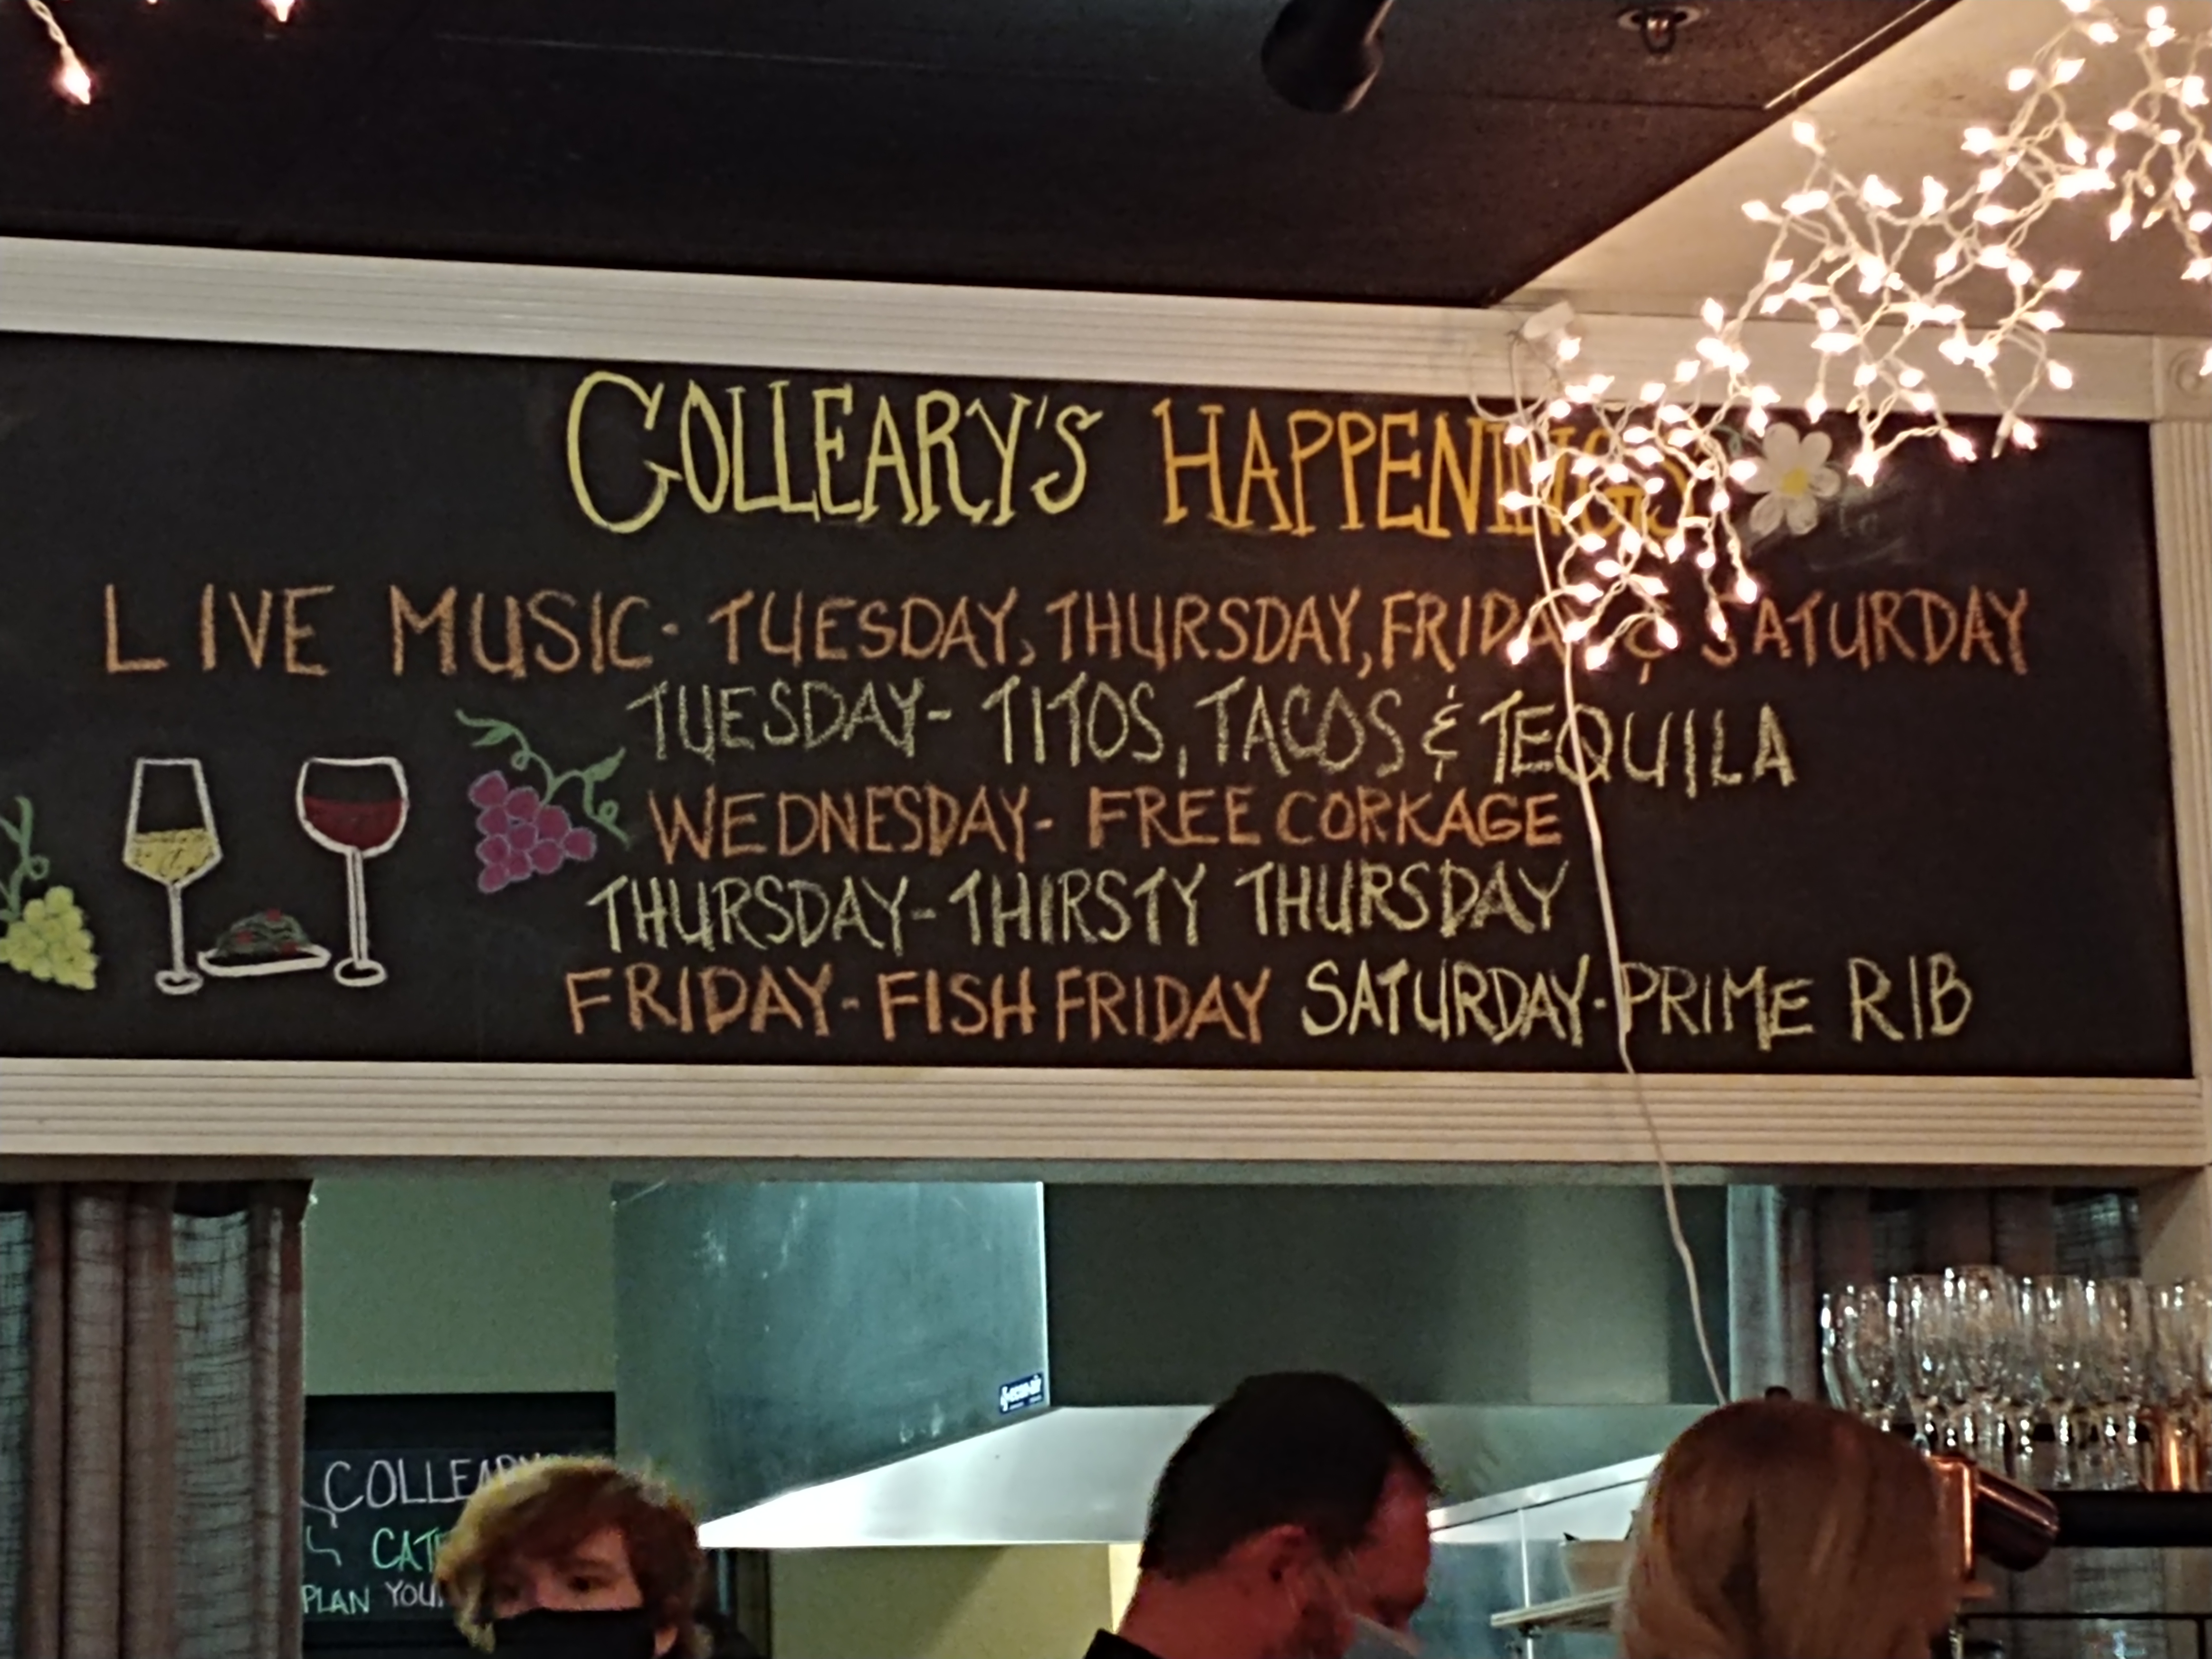 COLLEARY'S HAPPENINGS
LIVE MUSIC- TUESDAY, THURSDAY, FRIDAY & SATURDAY
TUESDAY- TITOS, TACOS & TEQUILA
WEDNESDAY- FREE CORKAGE
THURSDAY- THIRSTY THURSDAY
FRIDAY- FISH FRIDAY SATURDAY- PRIME RIB
COLLEARY'S
PLAN